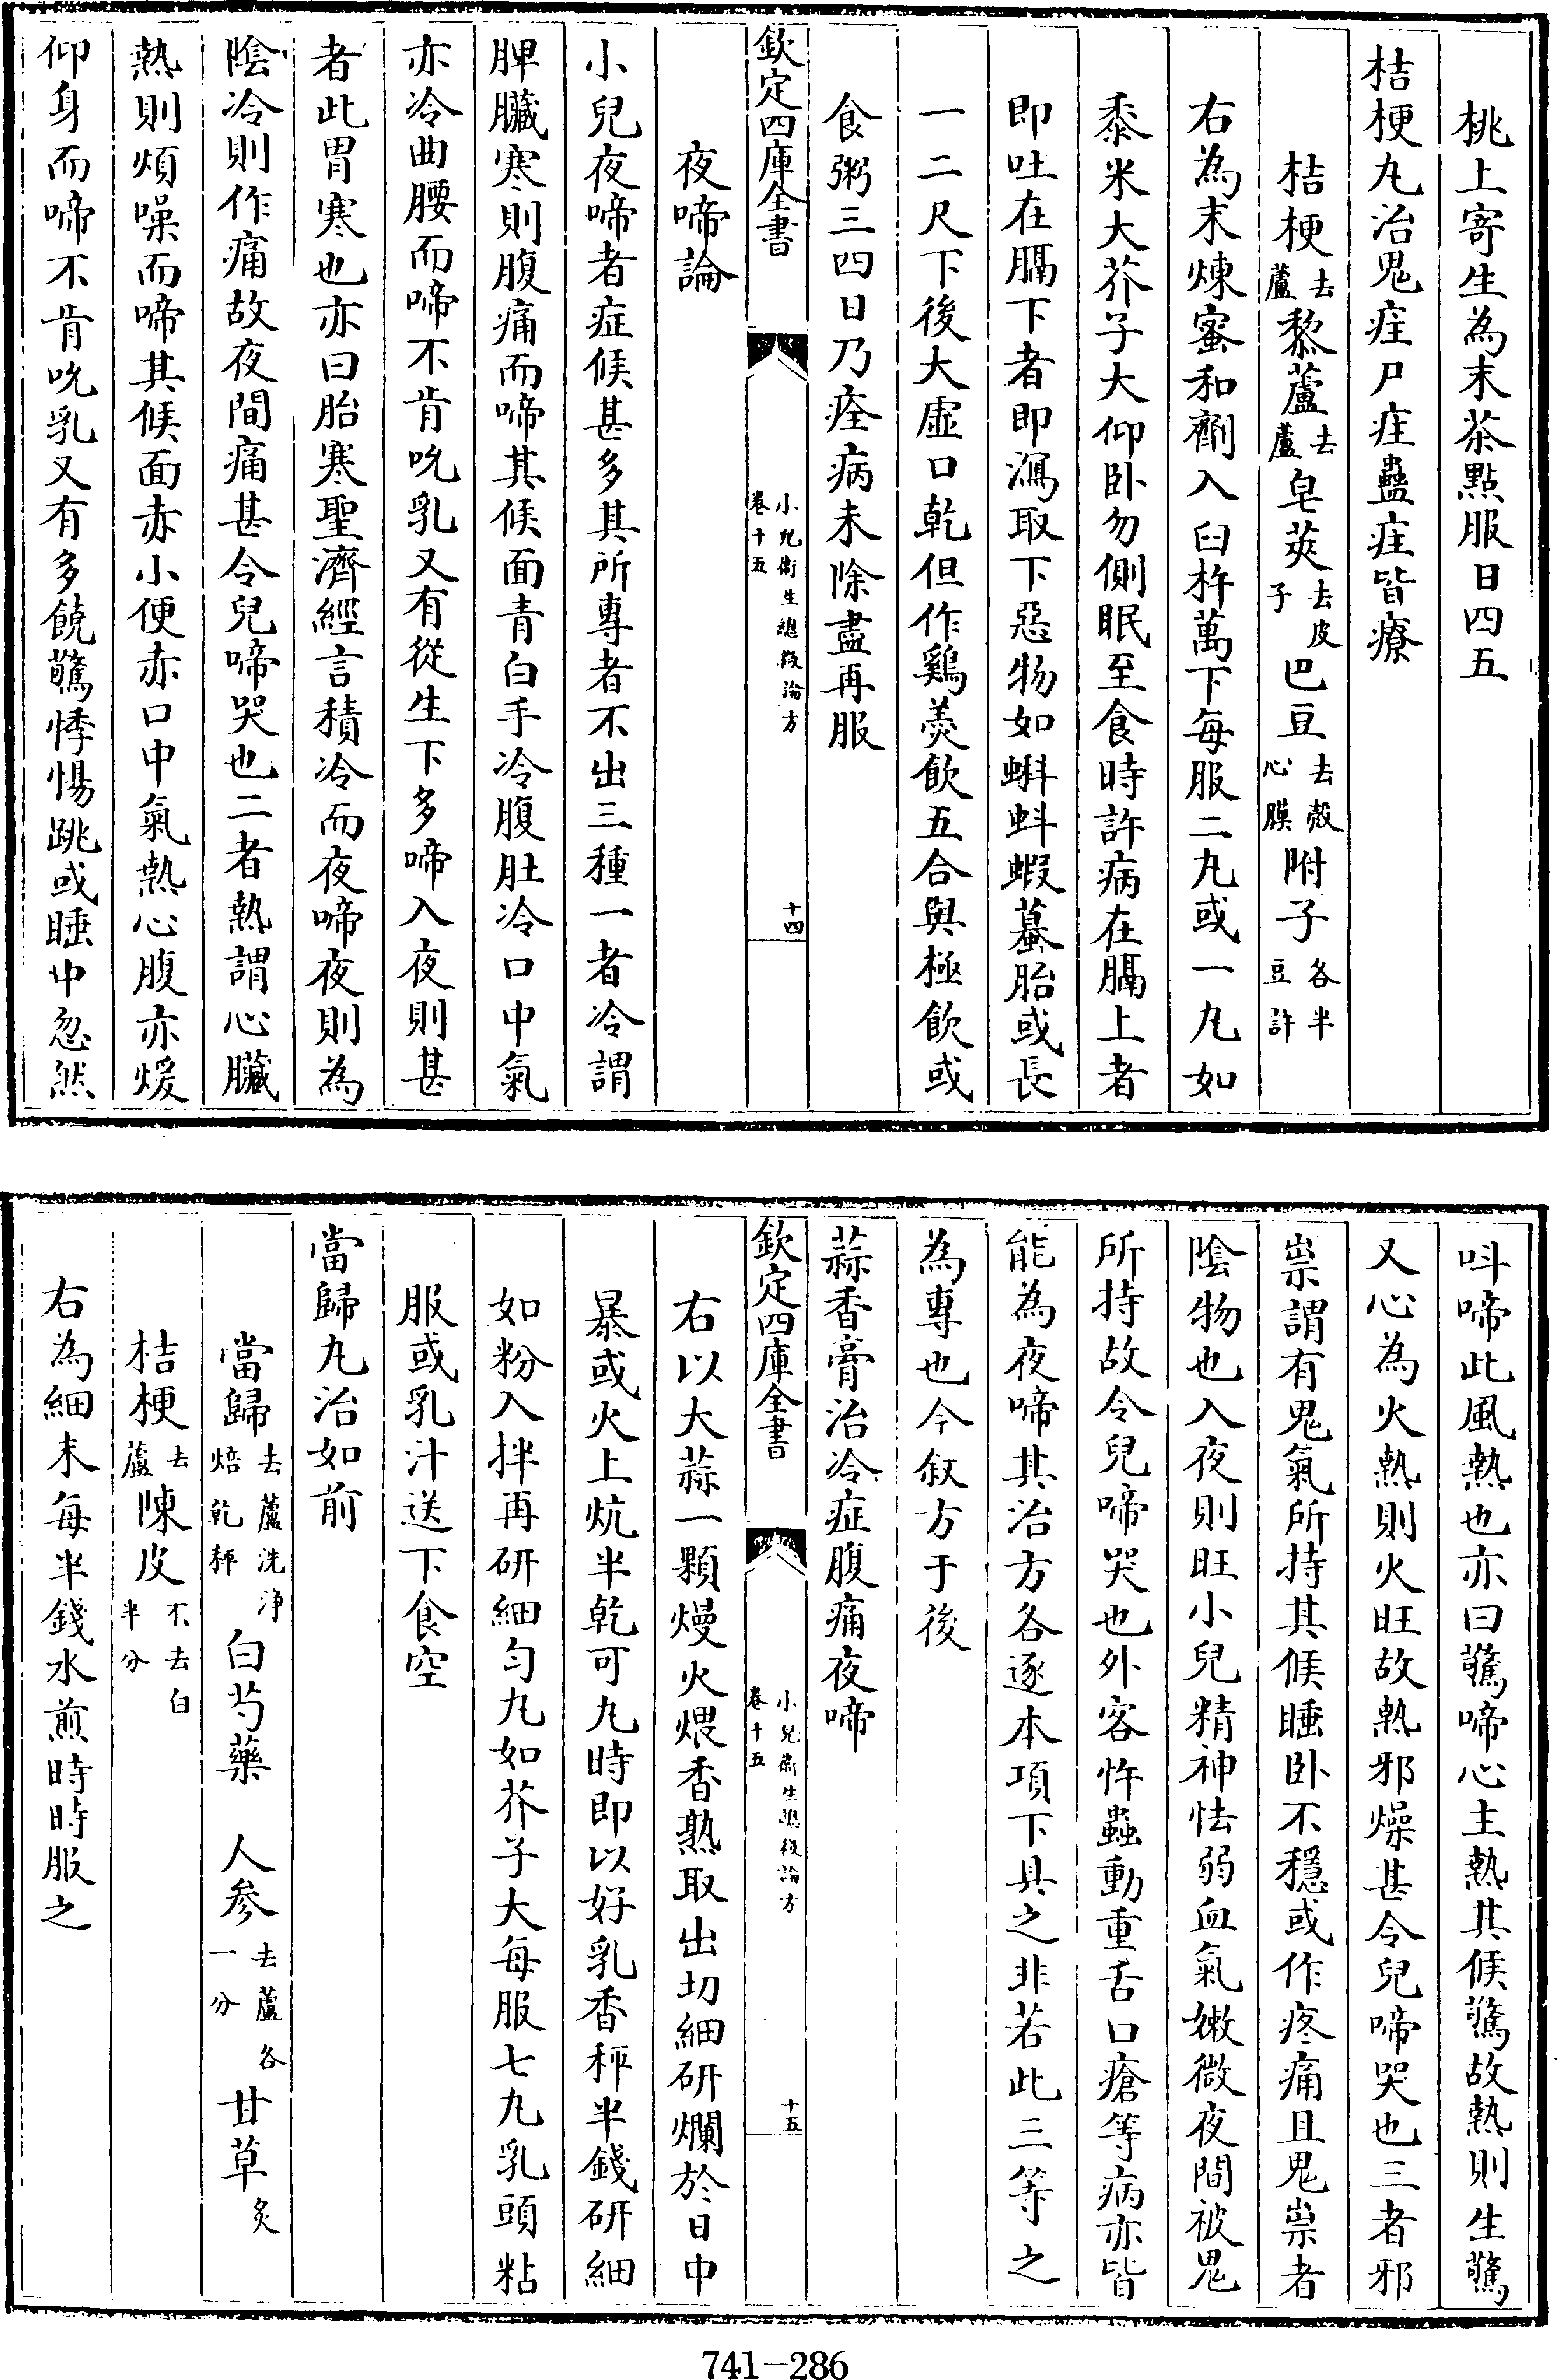 桃上寄生為末茶點服日四五
桔梗丸治鬼疰尸疰蠱疰皆療
桔梗去蘆黎蘆去蘆皂莢去皮子巴豆去殻心膜附子各半豆許
右為末煉蜜和劑入臼杵萬下每服二丸或一丸如
黍米大芥子大仰卧勿側眠至食時許病在膈上者
即吐在膈下者即瀉取下惡物如蝌蚪蝦蟇胎或長
一二尺下後大虛口乾但作鷄羮飲五合與極飲或
食粥三四日乃痊病未除盡再服
欽定四庫全書
小兒衛生總微論方
卷十五
十四
夜啼論
小兒夜啼者症候甚多其所專者不出三種一者冷謂
脾臟寒則腹痛而啼其候面青白手冷腹肚冷口中氣
亦冷曲腰而啼不肯吮乳又有從生下多啼入夜則甚
者此胃寒也亦曰胎寒聖濟經言積冷而夜啼夜則為
陰冷則作痛故夜間痛甚令兒啼哭也二者熱謂心臟
熱則煩噪而啼其候面赤小便赤口中氣熱心腹亦煖
仰身而啼不肯吮乳又有多饒驚悸惕跳或睡中忽然
呌啼此風熱也亦曰驚啼心主熱其候驚故熱則生驚
又心為火熱則火旺故熱邪燥甚令兒啼哭也三者邪
祟謂有鬼氣所持其候睡卧不穩或作疼痛且鬼祟者
陰物也入夜則旺小兒精神怯弱血氣嫩微夜間被鬼
所持故令兒啼哭也外客忤蟲動重舌口瘡等病亦皆
能為夜啼其治方各逐本項下具之非若此三等之
為專也今叙方于後
蒜香膏治冷症腹痛夜啼
欽定四庫全書
小兒衛生總微論方
卷十五
十五
右以大蒜一顆熳火煨香熟取出切細研爛於日中
暴或火上炕半乾可丸時即以好乳香秤半錢研細
如粉入拌再研細匀丸如芥子大每服七丸乳頭粘
服或乳汁送下食空
當歸丸治如前
當歸去蘆洗淨焙乾秤白芍藥　人參去蘆各一分甘草炙
桔梗去蘆陳皮不去白半分
右為細末每半錢水煎時時服之
741-286